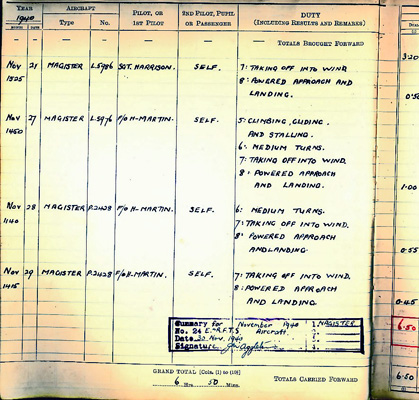 YEAR AIRCRAFT PILOT, OR 2ND PILOT, PUPIL DUTY
1940 Type No. 1ST PILOT OR PASSENGER (INCLUDING RESULTS AND REMARKS)
MONTH DATE
— — — — — — TOTALS BROUGHT FORWARD
Nov 21 MAGISTER L5986 SGT. HARRISON. SELF. 7: TAKING OFF INTO WIND 3.20
1525 8: POWERED APPROACH AND
LANDING.
Nov 27 MAGISTER L5976 F/O H-MARTIN. SELF. 5: CLIMBING, GLIDING
1450 AND STALLING.
6: MEDIUM TURNS.
7: TAKING OFF INTO WIND.
8: POWERED APPROACH
AND LANDING. 1.00
Nov 28 MAGISTER P2428 F/O H-MARTIN. SELF. 6: MEDIUM TURNS.
1140 7: TAKING OFF INTO WIND.
8: POWERED APPROACH
AND LANDING 0.55
Nov 29 MAGISTER P2428 F/O H-MARTIN. SELF. 7: TAKING OFF INTO WIND.
1415 8: POWERED APPROACH
AND LANDING 0.45
Summary for November 1940 1. MAGISTER 6.50
No. 24 E.R.F.T.S Aircraft
Date 30 Nov. 1940
Signature
GRAND TOTAL [Cols. (1) to (10)]
6 Hrs. 50 Mins. TOTALS CARRIED FORWARD 6.50